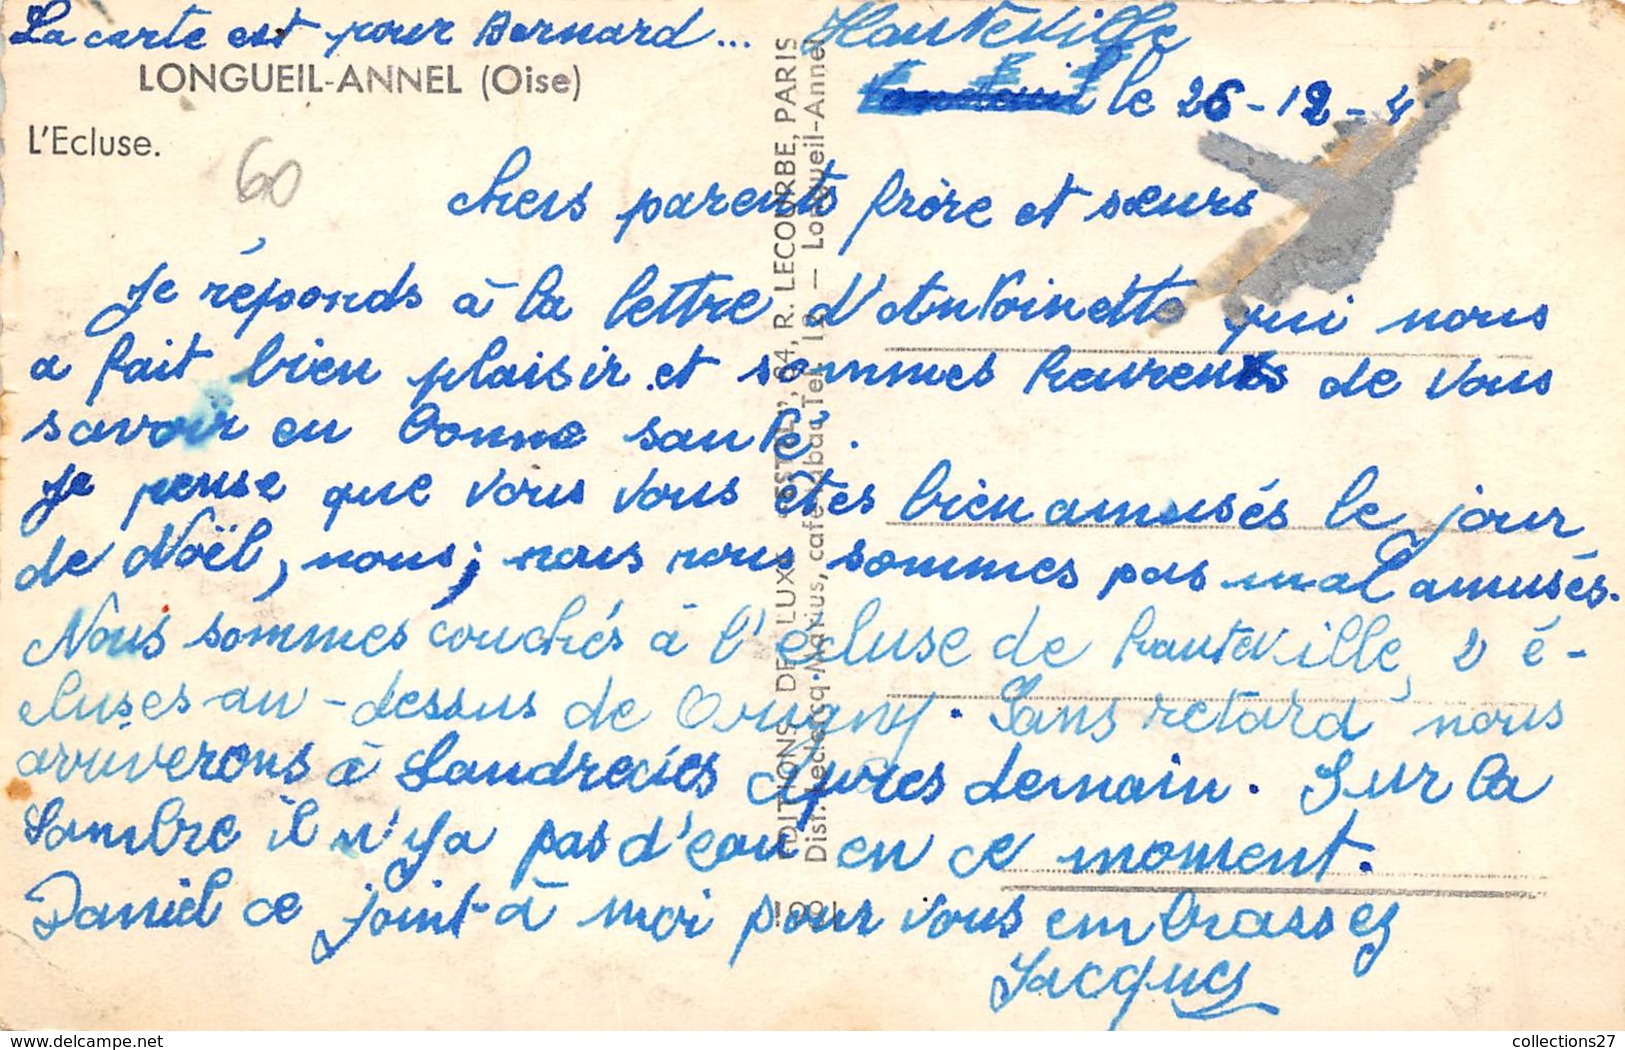 La carte est pour Bernard...
Hauteville
le 26-12-4
LONGUEIL-ANNEL (Oise)
L'Ecluse.
60
chers parents frère et sœurs
Je réponds à la lettre d'Antoinette qui nous
a fait bien plaisir et sommes heureux de vous
savoir en bonne santé.
Je pense que vous vous êtes bien amusés le jour
de Noël, nous; nous nous sommes pas mal amusés.
Nous sommes couchés à l'écluse de hauteville, 2 é-
cluses au-dessus de Origny. Sans retard nous
arriverons à Landrecies après demain. Sur la
Sambre il n'y a pas d'eau en ce moment.
Daniel ce joint à moi pour vous embrassez
Jacques
EDITIONS DE LUXE "ESTEL", 64, R. LECOURBE, PARIS
Dist. Leclercq-Marius, café-tabac Tel. 18 — Longueil-Annel
collections27